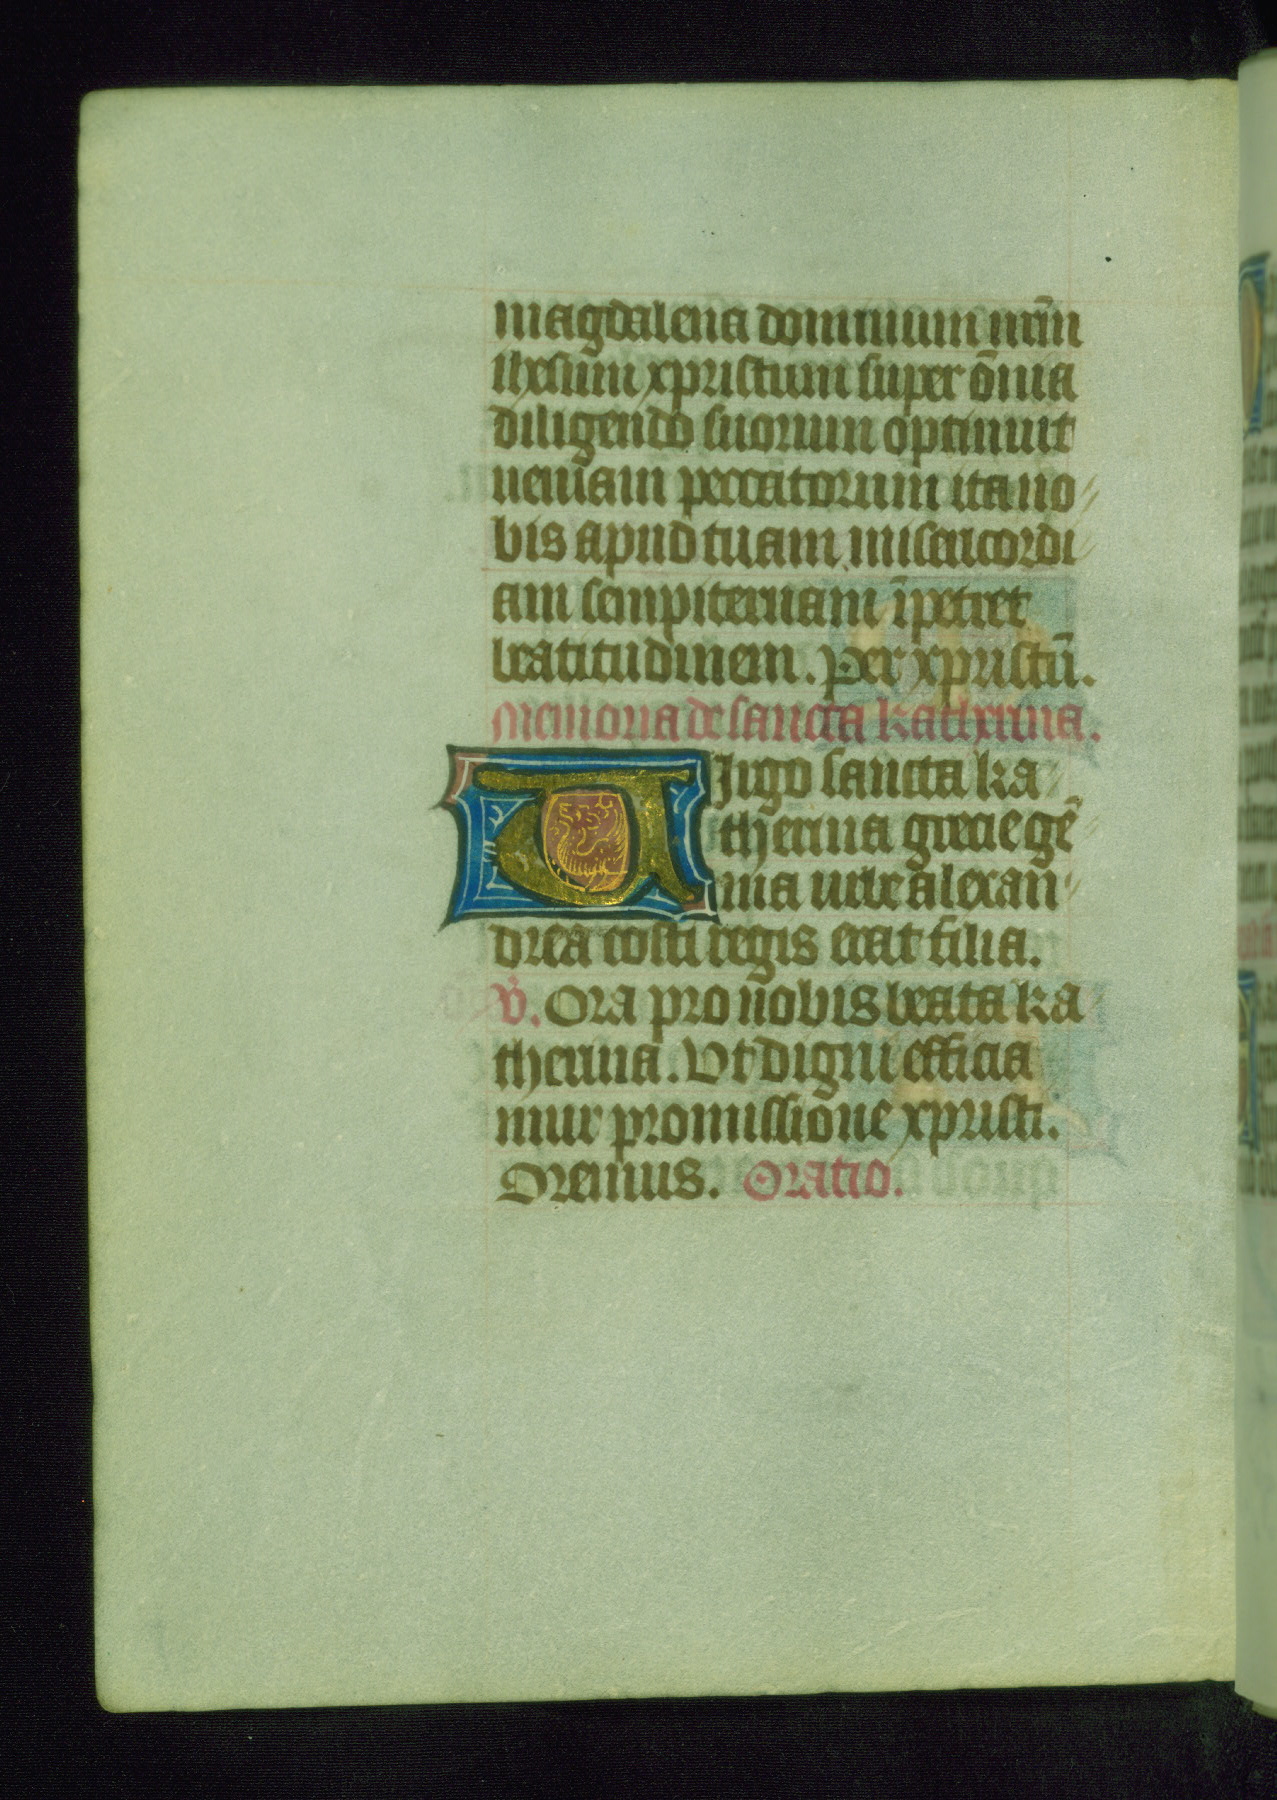 magdalena dominum nr̄m
ihesum̄ xpristum super ōnia
diligendo suorum optinuit
ueniam peccatorum ita no
bis apud tuam misericordi
am sempiternam īpetret
beatitudinem. Per xpristū.
Memoria de sancta katherina.
Uirgo sancta ka
therina grecie gē
ma urbe alexan
drea costi regis erat filia.
V̇. Ora pro nobis beata ka
therina. Vt digni efficia
mur promissione xpristi.
Oremus. Oratio.